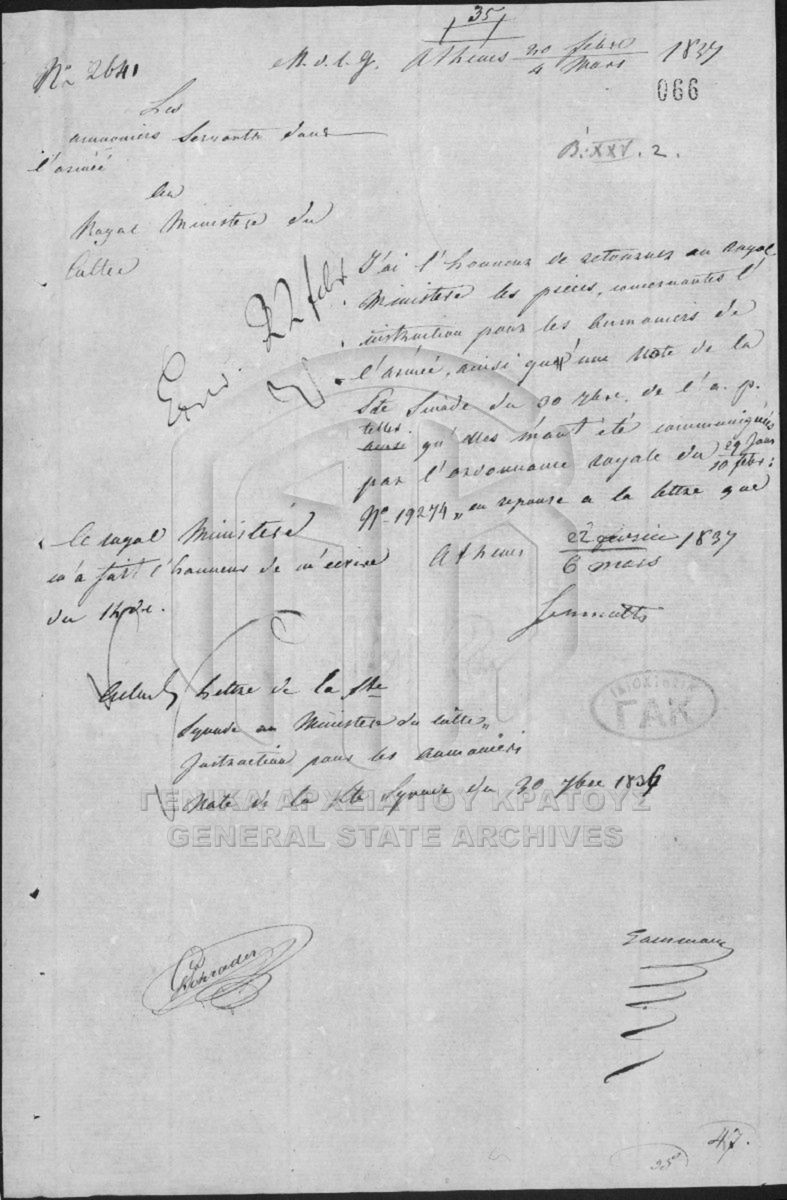 35
No 2641
M. d. l. G. Athènes 20 febr / 4 Mars 1837
066
Les
aumoniers servants dans
l'armée
B. XXV. 2.
Au
Royal Ministere du
Culte
22 febr
J'ai l'honneur de retourner au Royal
Ministere les pièces, concernantes l'
instruction pour les Aumoniers de
l'armée, ainsi qu'une Note de la
Ste Sinode du 30 9bre. de l'a. p.
telles
ainsi qu'elles m'ont été communiqués
par l'ordonnance royale du 29 Janv / 10 febr:
No 19274 „ en reponse a la lettre que
le royal Ministère
m'a fait l'honneur de m'ecrire
du
Athenes 22 fevrier / 6 mars 1837
Lettre de la Ste
Synode au Ministere du culte „
Instruction pour les aumoniers
Note de la Ste Synode du 30 9bre 1836
ΓΑΚ
ΓΕΝΙΚΑ ΑΡΧΕΙΑ ΤΟΥ ΚΡΑΤΟΥΣ
GENERAL STATE ARCHIVES
Schrader
47.
35